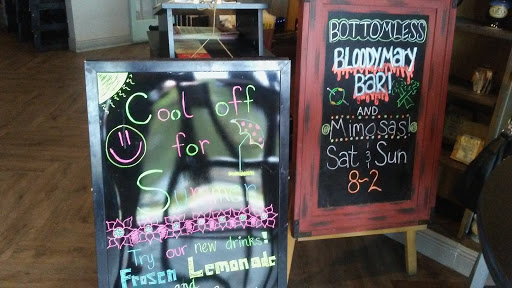 Cool off
for
Summer
Try our new drinks!
Frozen Lemonade
and
BOTTOMLESS
BLOODY MARY
BAR!
AND
Mimosas!
Sat & Sun
8-2